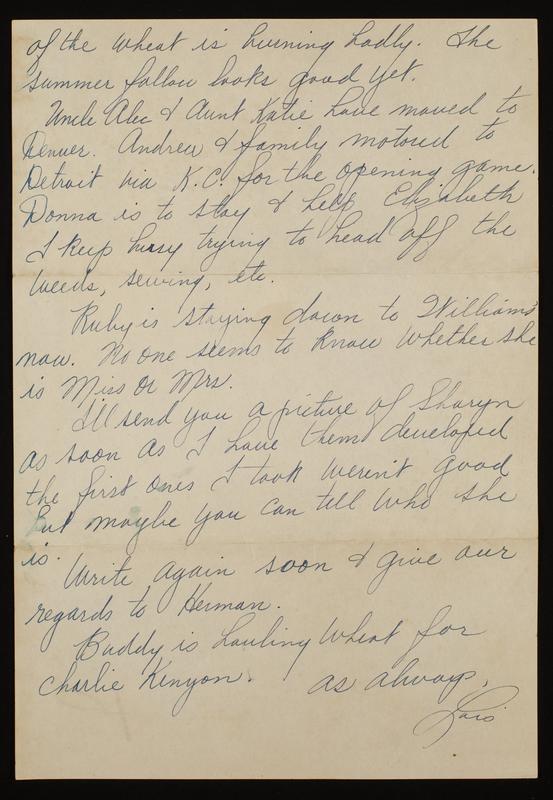 of the wheat is burning badly. The
summer fallow looks good yet.
Uncle Alec & Aunt Katie have moved to
Denver. Andrew & family motored to
Detroit via K.C. for the opening game.
Donna is to stay & help Elizabeth
I keep busy trying to head off the
weeds, sewing, etc.
Ruby is staying down to Williams'
now. No one seems to know whether she
is Miss or Mrs.
I'll send you a picture of Sharyn
as soon as I have them developed
the first ones I took weren't good
but maybe you can tell who she
is.
Write again soon & give our
regards to Herman.
Buddy is hauling wheat for
Charlie Kenyon.
as always,
Lois